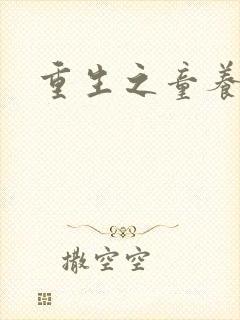 重生之童养
撒空空